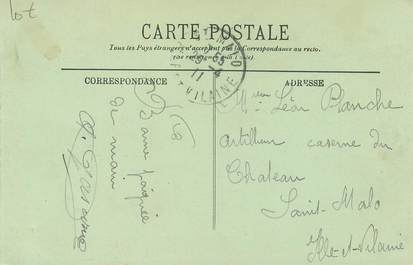 lot
CARTE POSTALE
Tous les Pays étrangers n'acceptent pas la Correspondance au recto.
(se renseigner à la Poste).
CORRESPONDANCE
ADRESSE
11 -4
ET VILAINE
Bonne
de main
Léon Planche
artilleur caserne du
Chateau
Saint-Malo
Ille-et-Vilaine